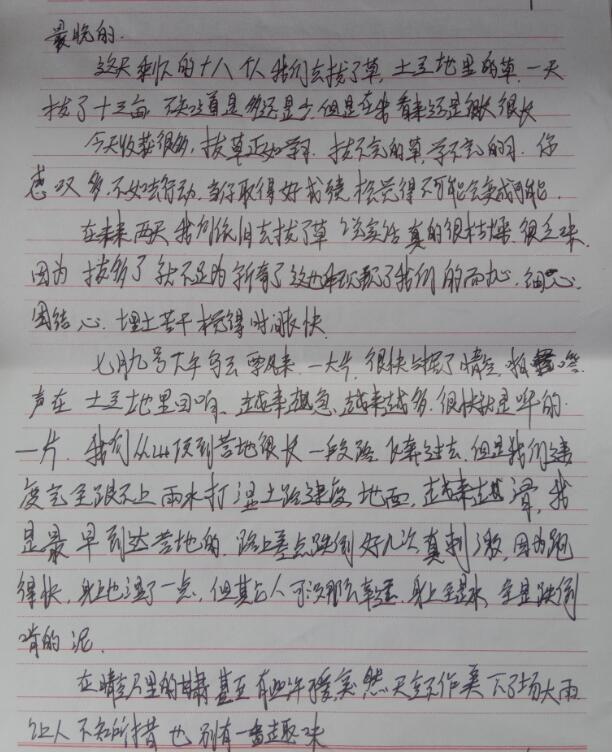 最晚的.
这天剩下的十八个人我们去拔了草,土豆地里的草,一天
拔了十三亩,不知道是多还是少,但是在我看来还是很长很长
今天收获很多,拔草正如学习,拔不完的草,学不完的习.你
感叹多,不如去行动,当你取得好成绩,松觉得不可能会变成可能.
在未来两天我们依旧去拔了草 说实话真的很枯燥,很乏味
因为拔多了就不足为新奇了这也体现了我们的耐心,细心
团结心.埋土苦干 觉得时间很快
七月九号下午乌云飘来,一大片,很快占据了晴空,
声在土豆地里回响,越来越急,越来越多,很快就是哗的
一片.我们从山顶到营地很长一段路 飞奔过去,但是我们速
度完全跟不上雨水打湿土路速度 地面,越来越滑,我
是最早到达营地的,路上差点跌倒好几次真刺激,因为跑
得快,身上也湿了一点,但其他人可没那么幸运,身上全是水,全是跌倒
啃的泥.
在晴空万里的甘肃甚至有些许 突然天空作美下了场大雨
让人不知所措也别有一番趣味